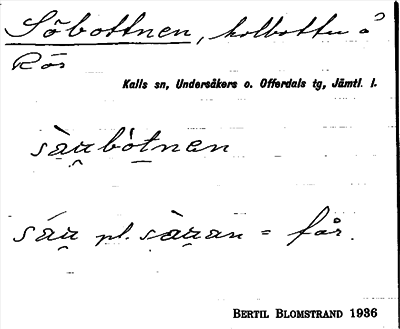 Söbottnen, kolbotten å
Rös
Kalls sn, Undersåkers o. Offerdals tg, Jämtl. l.
sàu̯bòtnen
sáu̯ pl. sàu̯an = får.
BERTIL BLOMSTRAND 1936